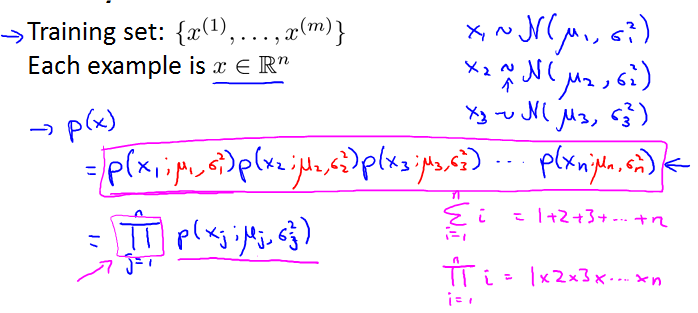 →Training set: {x^(1), . . . , x^(m)}
Each example is x ∈ ℝ^n
x₁ ~ N(μ₁, σ₁²)
x₂ ~ N(μ₂, σ₂²)
↑
x₃ ~ N(μ₃, σ₃²)
→ p(x)
= p(x₁;μ₁,σ₁²)p(x₂;μ₂,σ₂²)p(x₃;μ₃,σ₃²) ··· p(xₙ;μₙ,σₙ²) ←
= ∏_{j=1}^{n} p(xⱼ;μⱼ,σⱼ²)
∑_{i=1}^{n} i = 1+2+3+···+n
∏_{i=1}^{n} i = 1×2×3×···×n